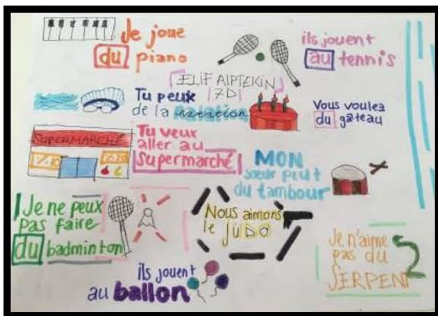 Je joue
du piano
ils jouent
au tennis
ELIF AlPTEKiN
7D
Tu peux
de la natation
Vous voulez
du gâteau
SUPERMARCHÉ
Tu veux
aller au
Supermarché
MON
soeur peut
du tambour
Je ne peux
pas faire
du badminton
Nous aimons
le JUDO
Je n'aime
pas du
SERPENT
ils jouent
au ballon